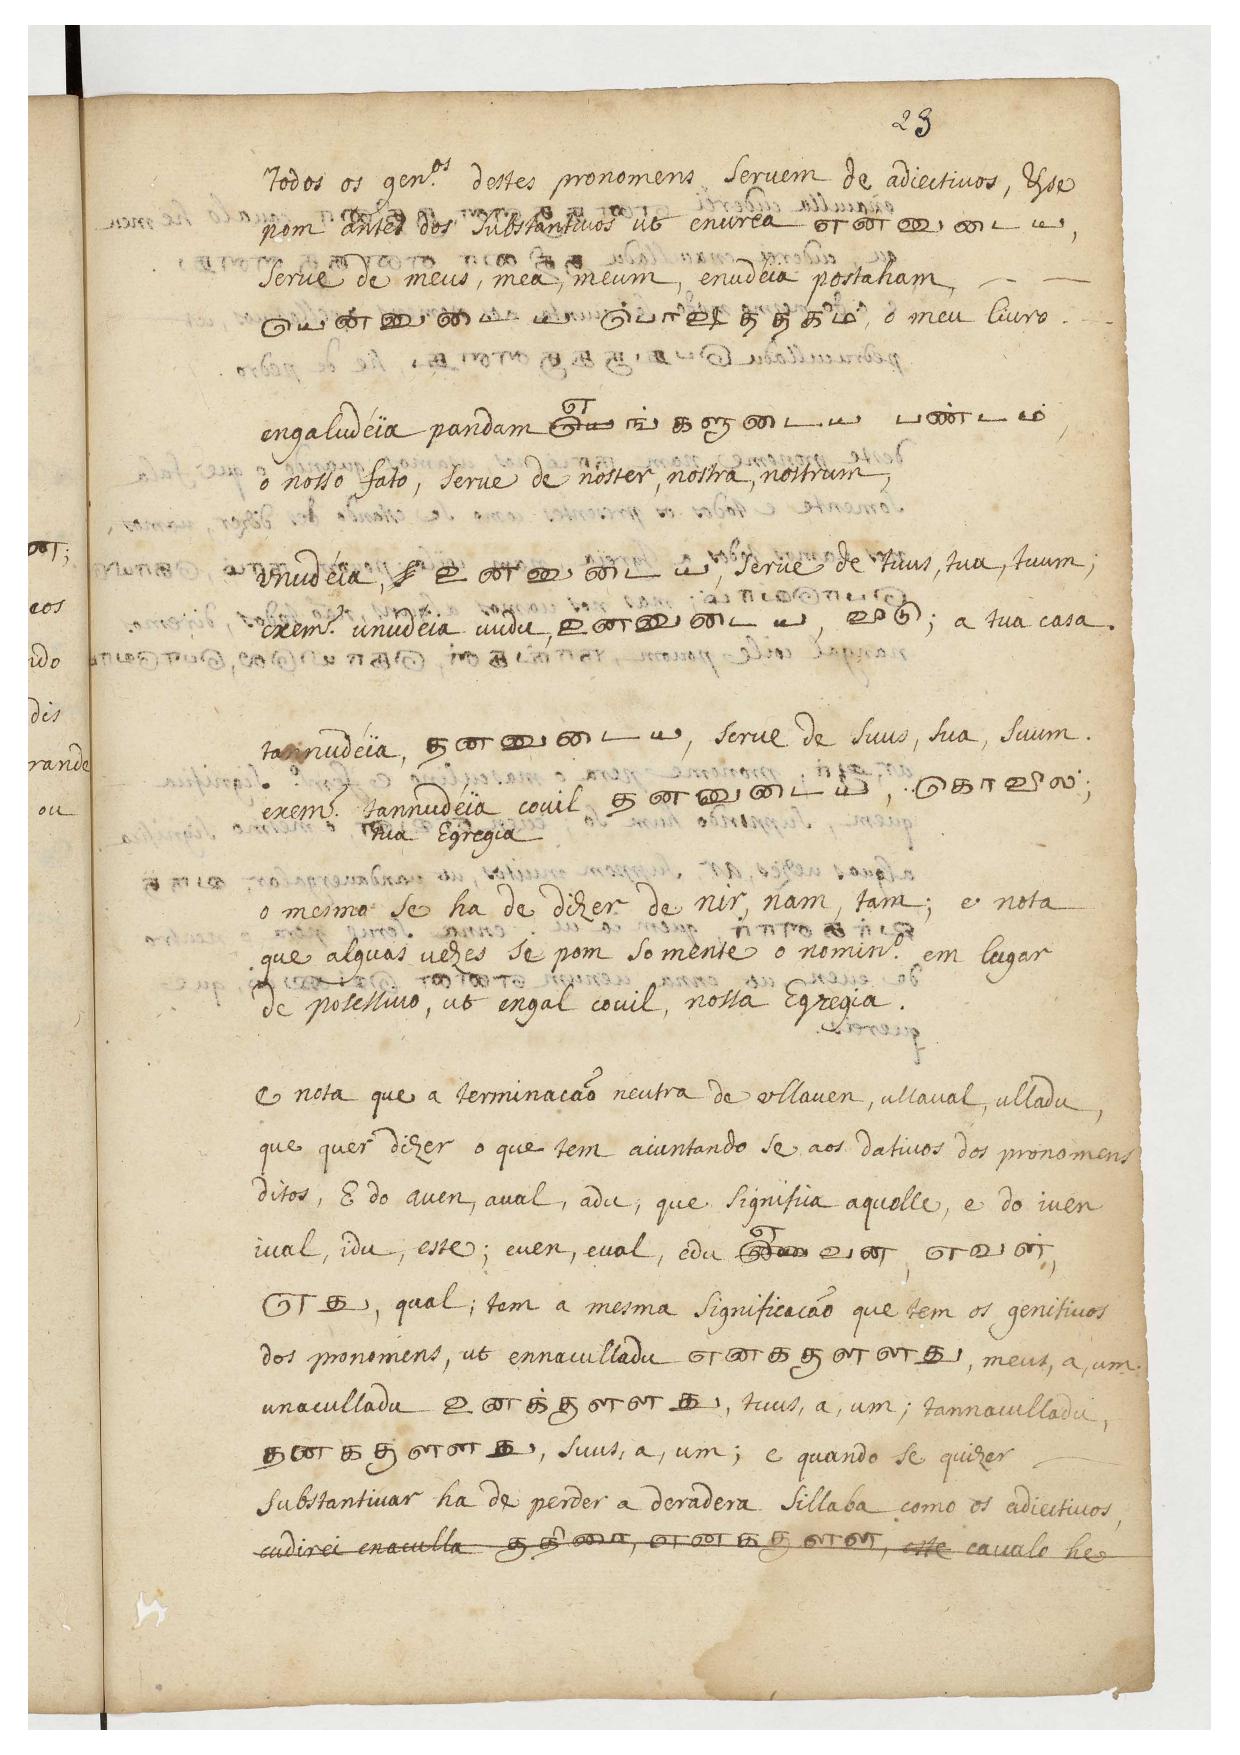 23
Todos os gen.os destes pronomens seruem de adiectiuos, & se
pom antes dos substantiuos ut enurea என்னுடைய,
serue de meus, mea, meum, enudéia postaham,
யென்னுடைய பொஷ்தகம், o meu liuro.
engaludéïa pandam எங்களுடைய பண்டம்,
o nosso fato, serue de noster, nostra, nostrum,
vnudéia, உன்னுடைய, serue de tuus, tua, tuum;
exem.º unudéia uudu, உன்னுடைய, வூடு; a tua casa.
tannudéïa, தன்னுடைய, serue de suus, sua, suum.
exem.º tannudéïa couil தன்னுடைய, கொவில்;
sua Egregia
o mesmo se ha de dizer de nir, nam, tam; e nota
que alguas uezes se pom somente o nomin.º em lugar
de posessiuo, ut engal couil, nossa Egregia.
e nota que a terminacaõ neutra de vllauen, ullaual, ulladu,
que quer dizer o que tem aiuntando se aos datiuos dos pronomens
ditos, E do auen, aual, adu, que significa aquelle, e do iuen
iual, idu, este; euen, eual, edu எவன, எவள்,
எது, qual; tem a mesma significacaõ que tem os genitiuos
dos pronomens, ut ennaculladu எனக்குளளது, meus, a, um.
unaculladu உனக்குளளது, tuus, a, um; tannaculladu,
தனக்குளளது, suus, a, um; e quando se quizer
substantiuar ha de perder a deradera sillaba como os adiectiuos,
cudirei enaculla குதிரை, எனக்குளள, este caualo he
ெos
ndo
dis
rande
ou